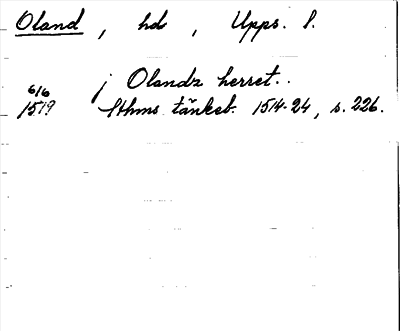 Oland, hd, Upps. l.
j Olandz herret..
6/6
1519 Sthms tänkeb. 1514-24, s. 226.